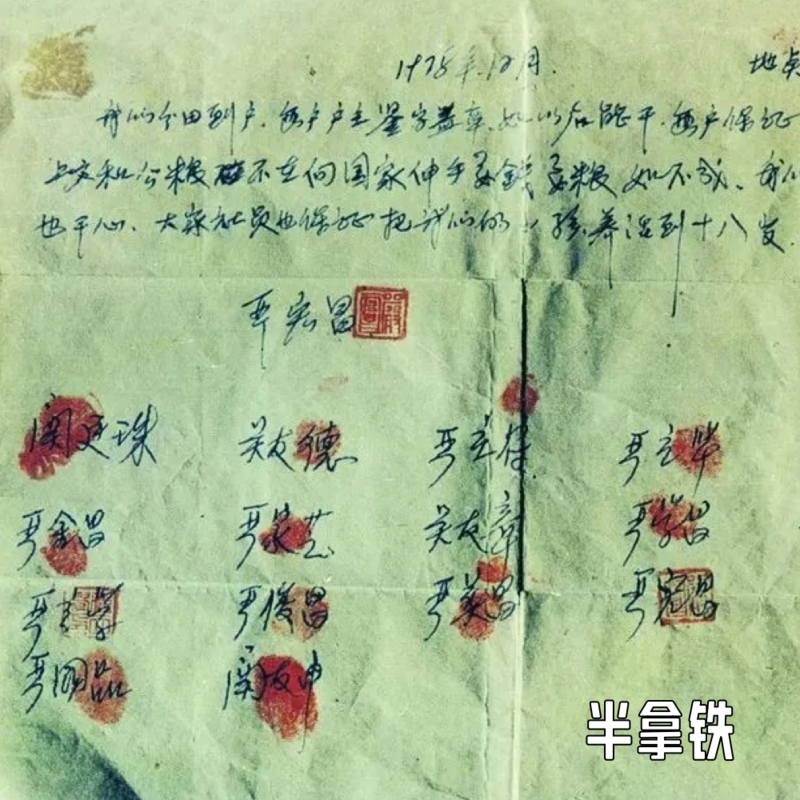 1978年.12月. 地点
我们分田到户.每户户主签字盖章.如以后能干.每户保证
上交和公粮 不在向国家伸手要钱要粮 如不成、我们
也干心、大家社员也保证把我们的小孩养活到十八岁.
严宏昌
关廷珠 关友德 严立付 严立华
严金昌 严家芝 关友章 严学昌
严立学 严俊昌 严美昌 严宏昌
严国品 关友申
半拿铁